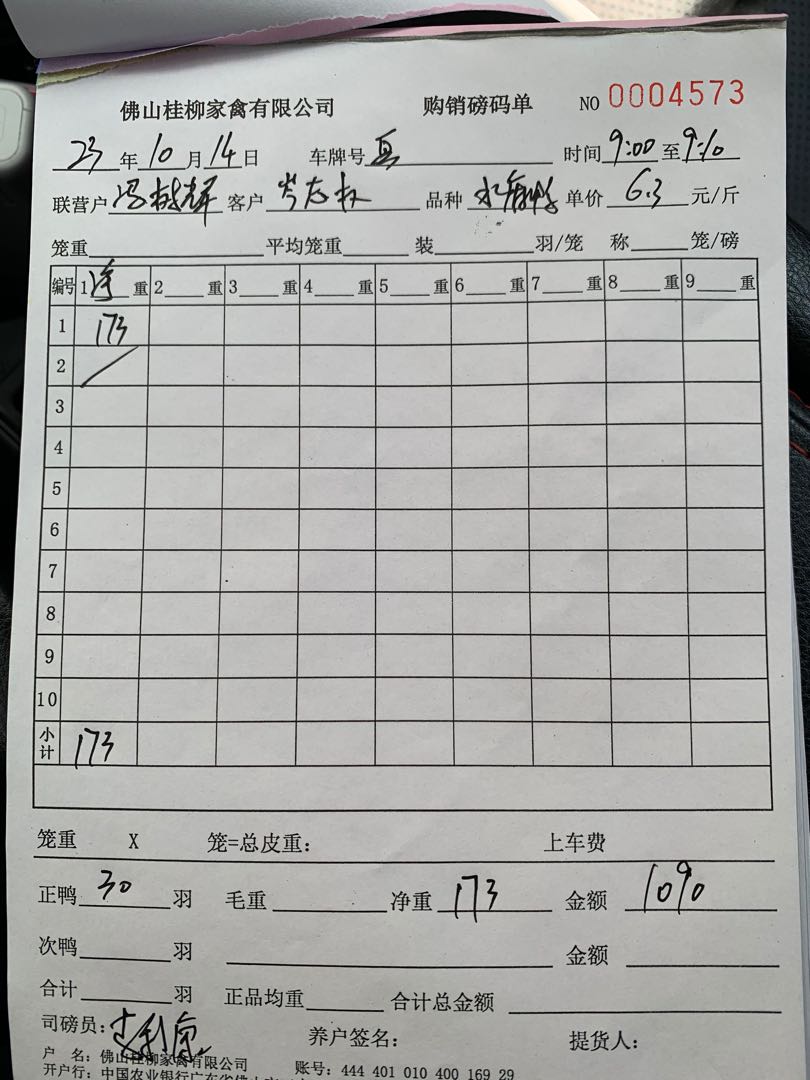 佛山桂柳家禽有限公司 购销磅码单 NO 0004573
23年10月14日 车牌号 时间9:00至9:10
联营户 冯树辉 客户 岑志权 品种 单价 6.3 元/斤
笼重 平均笼重 装 羽/笼 称 笼/磅
编号 1 净 重 2 重 3 重 4 重 5 重 6 重 7 重 8 重 9 重
1 173
2
3
4
5
6
7
8
9
10
小计 173
笼重 X 笼=总皮重: 上车费
正鸭 30 羽 毛重 净重 173 金额 1090
次鸭 羽 金额
合计 羽 正品均重 合计总金额
司磅员: 养户签名: 提货人:
户 名: 佛山桂柳家禽有限公司 账号: 444 401 010 400 169 29
开户行: 中国农业银行广东省佛山